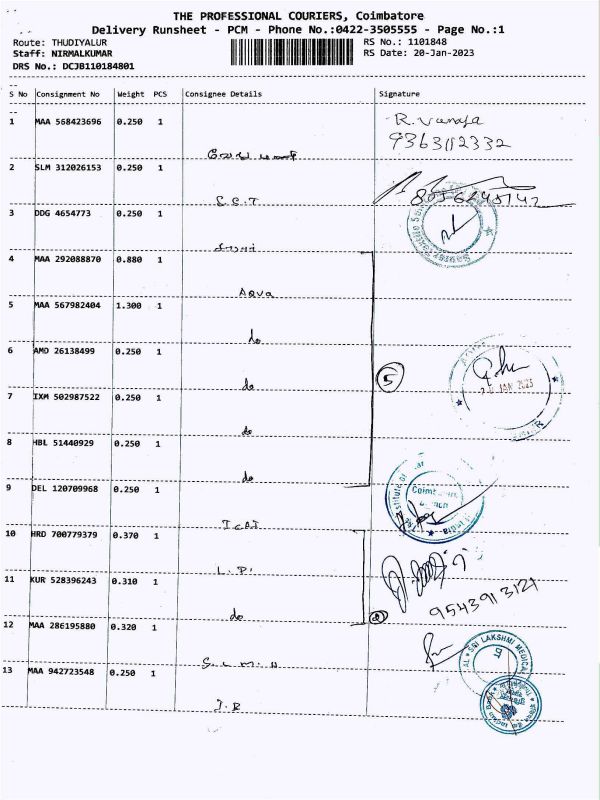 THE PROFESSIONAL COURIERS, Coimbatore
Delivery Runsheet - PCM - Phone No.:0422-3505555 - Page No.:1
Route: THUDIYALUR
RS No.: 1101848
Staff: NIRMALKUMAR
RS Date: 20-Jan-2023
DRS No.: DCJB110184801
S No Consignment No Weight PCS Consignee Details Signature
1 MAA 568423696 0.250 1
R. Vanaja
9363112332
2 SLM 312026153 0.250 1
S.S.T
3 DDG 4654773 0.250 1
4 MAA 292088870 0.880 1
Aqua
5 MAA 567982404 1.300 1
do
6 AMD 26138499 0.250 1
do
5
7 IXM 502987522 0.250 1
do
8 HBL 51440929 0.250 1
do
9 DEL 120709968 0.250 1
ICAI
10 HRD 700779379 0.370 1
L.P.
11 KUR 528396243 0.310 1
do
9543913121
12 MAA 286195880 0.320 1
SRI LAKSHMI MEDICAL
13 MAA 942723548 0.250 1
J.R